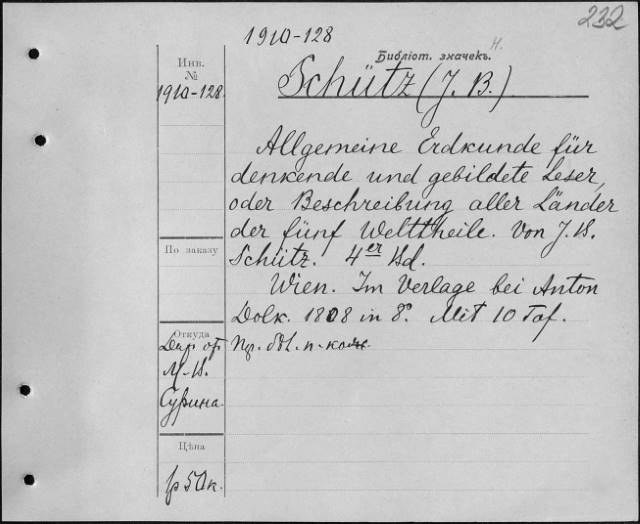 232
1910-128
Библіот. значекъ. Н.
Schütz (J. B.)
Инв.
№
1910-128.
Allgemeine Erdkunde für
denkende und gebildete Leser,
oder Beschreibung aller Länder
der fünf Welttheile. Von J. B.
Schütz. 4er Bd.
Wien. Im Verlage bei Anton
Doll. 1808 in 8º. Mit 10 Taf.
По заказу
Откуда
Даръ отъ
М. В.
Сурина.
Цѣна
50к.